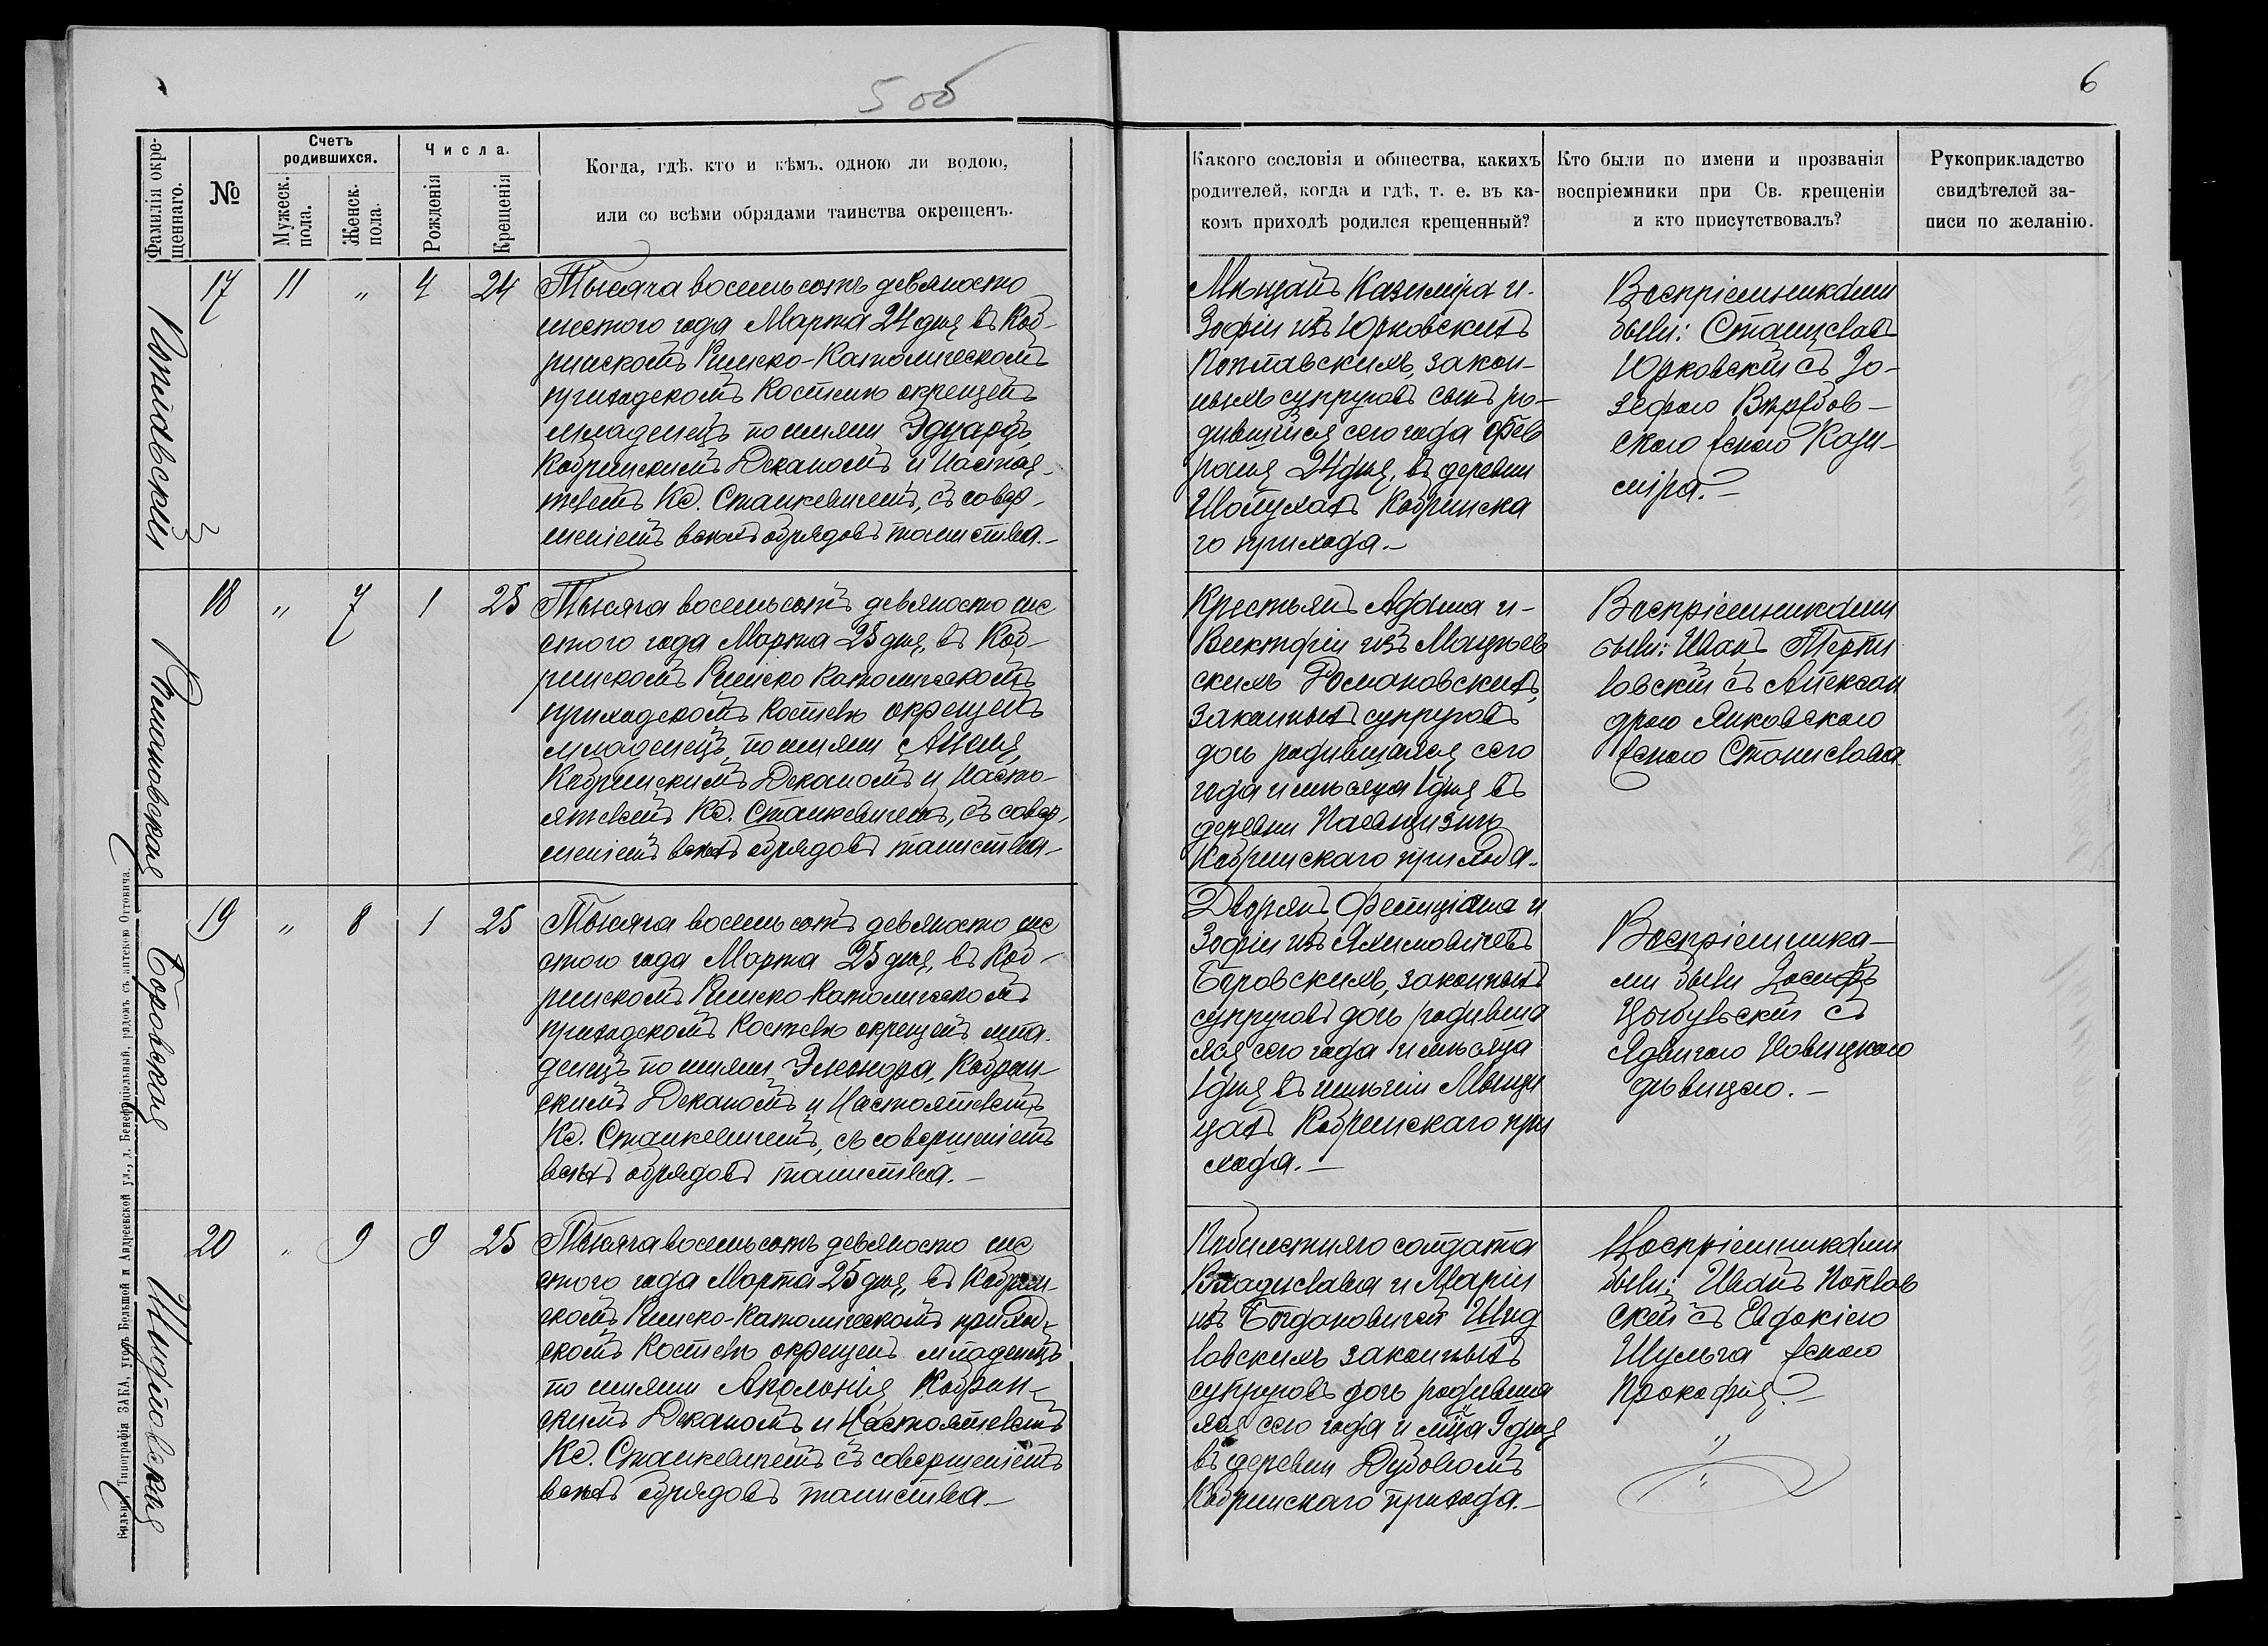 5 об
6
Фамилія окре-
щеннаго.
№
Счетъ
родившихся.
Мужеск.
пола.
Женск.
пола.
Числа.
Рожденія
Крещенія
Когда, гдѣ, кто и кѣмъ, одною ли водою,
или со всѣми обрядами таинства окрещенъ.
Какого сословія и общества, какихъ
родителей, когда и гдѣ, т. е. въ ка-
комъ приходѣ родился крещенный?
Кто были по имени и прозванія
воспріемники при Св. крещеніи
и кто присутствовалъ?
Рукоприкладство
свидѣтелей за-
писи по желанію.
17 11 " 4 24
Тысяча восемьсотъ девяносто
шестого года Марта 24 дня, въ Коб-
ринскомъ Римско-Католическомъ
приходскомъ Костелѣ окрещенъ
младенецъ по имени Эдуардъ,
Кобринскимъ Деканомъ и Настоя-
телемъ Кс. Станкевичемъ, съ совер-
шеніемъ всѣхъ обрядовъ таинства.-
Мѣщанъ Казиміра и
Зофіи изъ Юрковскихъ
закон-
ныхъ супруговъ сынъ ро-
дившійся сего года Фев
раля 24 дня, въ деревни
Кобринска
го прихода.-
Воспріемниками
были: Станиславъ
Юрковскій съ Іо-
зефою Вѣрбов-
скою женою Кази-
міра.-
18 " 7 1 25
Романовская
Тысяча восемьсотъ девяносто ше
стого года Марта 25 дня, въ Коб-
ринскомъ Римско Католическомъ
приходскомъ Костелѣ окрещенъ
младенецъ, по имени Анеля,
Кобринскимъ Деканомъ и Насто-
ятелемъ Кс. Станкевичемъ, съ совер-
шеніемъ всѣхъ обрядовъ таинства-
Крестьянъ Адама и-
Викторіи изъ Мацѣев
скихъ Романовскихъ,
законныхъ супруговъ
дочь родившаяся сего
года и мѣсяца 1 дня въ
деревни
Кобринскаго прихода.
Воспріемниками
были: Иванъ
съ Алексан
дрою Янковскою
женою Станислава
19 " 8 1 25
Боровская
Тысяча восемьсотъ девяносто ше
стого года Марта 25 дня, въ Коб-
ринскомъ Римско-Католическомъ
приходскомъ Костелѣ окрещенъ мла-
денецъ по имени Элеонора, Кобрин-
скимъ Деканомъ и Настоятелемъ
Кс. Станкевичемъ, съ совершеніемъ
всѣхъ обрядовъ таинства.-
Дворянъ, Фелиціана и
Зофіи изъ Яхимовичевъ
Боровскихъ, законныхъ
супруговъ дочь родивша
яся сего года и мѣсяца
1 дня въ имѣніи
Кобринскаго при
хода.-
Воспріемника-
ми были Іосифъ
Цыбульскій съ
Ядвигою Новицкою
дѣвицею.-
20 " 9 9 25
Шидловская
Тысяча восемьсотъ девяносто ше
стого года Марта 25 дня, въ Кобрин-
скомъ Римско-Католическомъ приход-
скомъ Костелѣ окрещенъ младенецъ
по имени Аполонія, Кобрин-
скимъ Деканомъ и Настоятелемъ
Кс. Станкевичемъ съ совершеніемъ
всѣхъ обрядовъ таинства.-
солдата
Владислава и Маріи
изъ Богдановичей Шид
ловскихъ законныхъ
супруговъ дочь родивша
яся сего года и мца 9 дня
въ деревни Дубовомъ
Кобринскаго прихода.-
Воспріемниками
были: Иванъ Козлов
скій съ Евдокіею
Шульга женою
Прокофія.-
Вильна, Типографія ЗАКА, уголъ Большой и Андреевской ул., д. Бенефиціальный, рядомъ съ аптекою Оттовича.